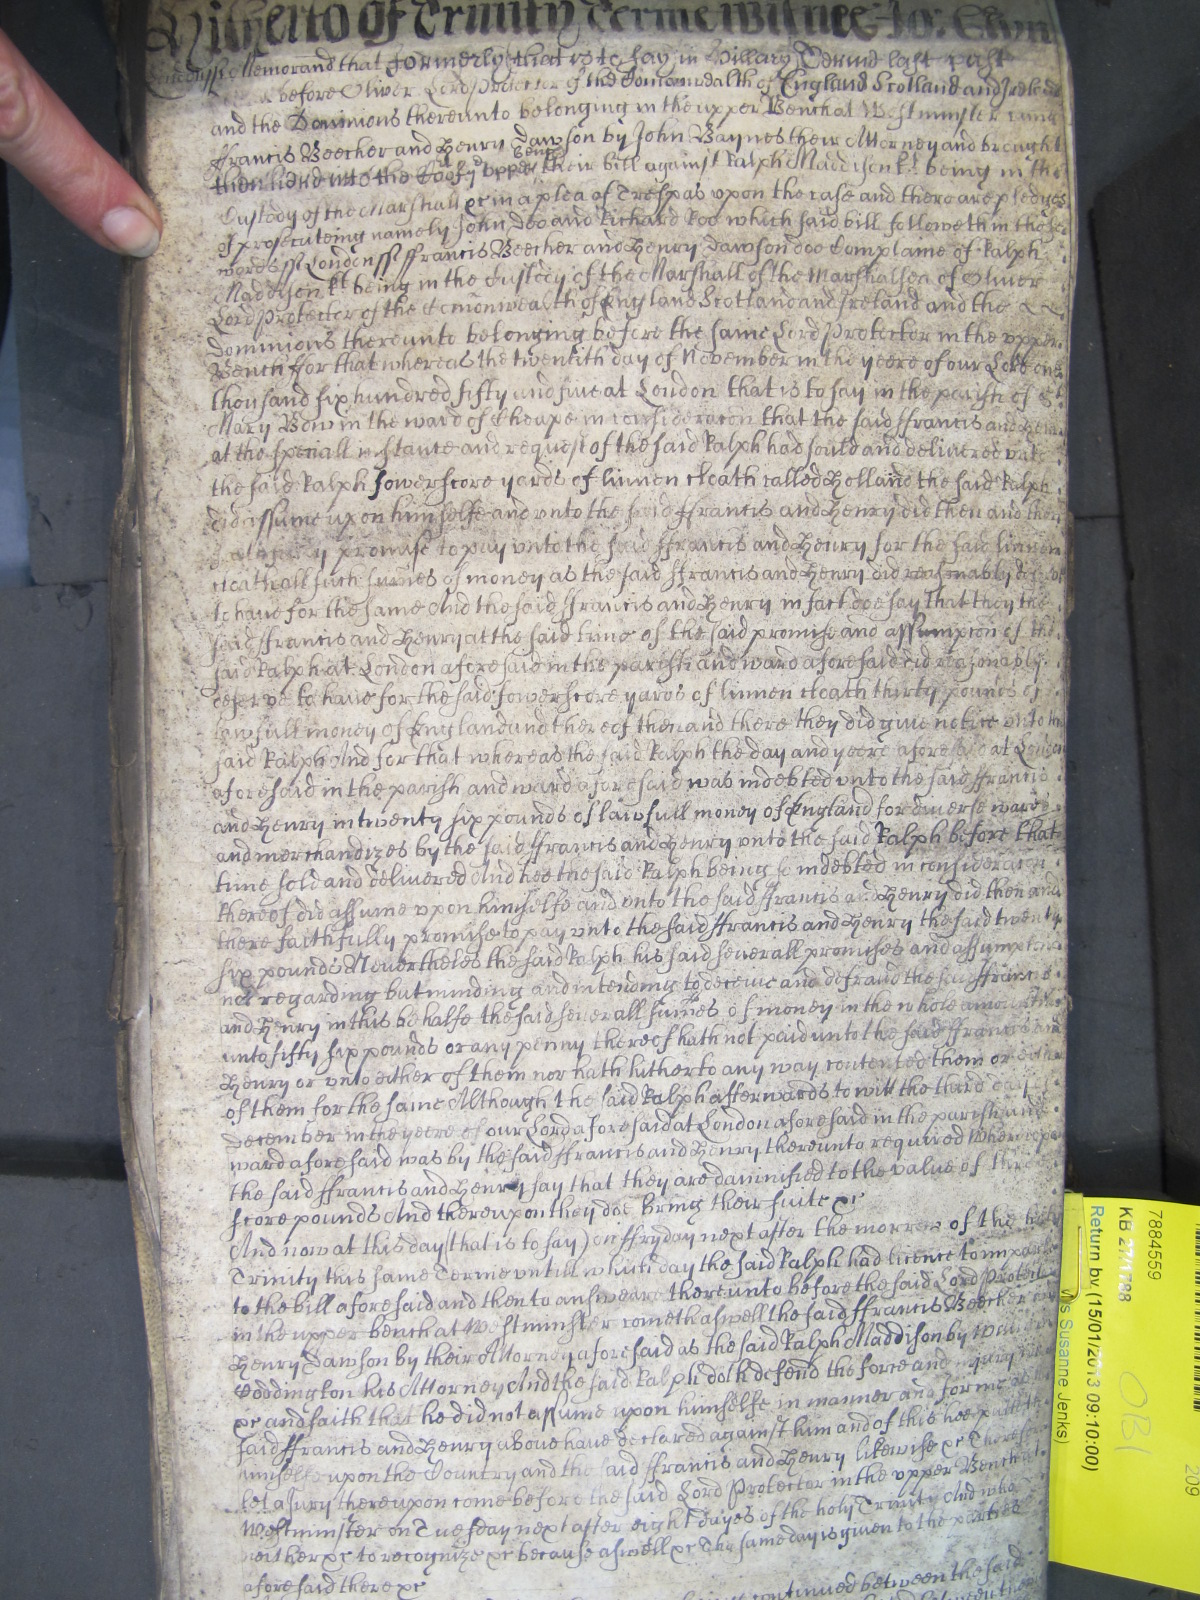 Hitherto of Trinity Terme witnes to:
Memorand that formerly that is to say in Hillary Terme last past
before Oliver Lord Protector of the Comonwealth of England Scotland and Ireland
and the Dominions thereunto belonging in the upper Bench at Westminster came
ffrancis Beecher and Henry Dawson by John Baynes their Attorney and brought
then here into the Court upper Bench their bill against Ralph Maddison kt being in the
Custody of the Marshall &c in a plea of Trespas upon the case and there are pledges
of prosecuteing namely John Doo and Richard Roo which said bill followeth in these
words ss London ss ffrancis Beecher and Henry Dawson doo Complaine of Ralph
Maddison kt being in the Custody of the Marshall of the Marshallsea of Oliver
Lord Protector of the Comonwealth of England Scotland and Ireland and the
dominions thereunto belonging before the same Lord Protector in the upper
Bench ffor that whereas the twentith day of November in the yeere of our Lord one
thousand six hundred fifty and five at London that is to say in the parish of St
Mary Bow in the ward of Cheape in consideracon that the said ffrancis and Henry
at the speciall instance and request of the said Ralph had sould and delivered unto
the said Ralph fowerscore yards of linnen cloath called Holland the said Ralph
did assume upon himselfe and unto the said ffrancis and Henry did then and there
promise to pay unto the said ffrancis and Henry for the said linnen
cloath all such sumes of money as the said ffrancis and Henry did reasonably deserve
to have for the same And the said ffrancis and Henry in fact doe say That they the
said ffrancis and Henry at the said time of the said promise and assumption of the
said Ralph at London aforesaid in the parish and ward aforesaid did reasonably
deserve to have for the said fowerscore yards of linnen cloath thirty pounds of
lawfull money of England and thereof then and there they did give notice unto the
said Ralph And for that whereas the said Ralph the day and yeere aforesaid at London
aforesaid in the parish and ward aforesaid was indebted unto the said ffrancis
and Henry in twenty six pounds of lawfull money of England for diverse wares
and merchandizes by the said ffrancis and Henry unto the said Ralph before that
time sold and delivered And hee the said Ralph being so indebted in consideracon
thereof did assume upon himselfe and unto the said ffrancis and Henry did then and
there faithfully promise to pay unto the said ffrancis and Henry the said twenty
six pounds Neverthelesse the said Ralph his said severall promises and assumptions
not regarding but minding and intending to deceive and defraud the said ffrancis
and Henry in this behalfe the said severall sumes of money in the whole amounting
unto fifty six pounds or any penny thereof hath not paid unto the said ffrancis and
Henry or unto either of them nor hath hitherto any way contented them or either
of them for the same Although the said Ralph afterwards to witt the third day of
december in the yeere of our Lord aforesaid at London aforesaid in the parish and
ward aforesaid was by the said ffrancis and Henry thereunto required Whereupon
the said ffrancis and Henry say that they are damnified to the value of
score pounds And thereupon they doe bring their suite &c
And now at this day (that is to say) on ffryday next after the morrow of the holy
Trinity this same Terme untill which day the said Ralph had licence to imparle
to the bill aforesaid and then to answeare thereunto before the said Lord Protector
in the upper bench at Westminster cometh aswell the said ffrancis Beecher and
Henry Dawson by their Attorney aforesaid as the said Ralph Maddison by
Doddington his Attorney And the said Ralph doth defend the force and injury
&c and saith that he did not assume upon himselfe in manner and forme as the
said ffrancis and Henry above have declared against him and of this hee putteth
himselfe upon the Country and the said ffrancis and Henry likewise &c Therefore
let a Jury thereupon come before the said Lord Protector in the upper Bench at
Westminster on Tuesday next after eight dayes of the holy Trinity And who
neither &c to recognize &c because aswell &c The same day is given to the parties
aforesaid there &c
continued betweene the said
7884559
KB 27/1788
Return by (15/01/2013 09:10:00)
Susanne Jenks)
OBI
209